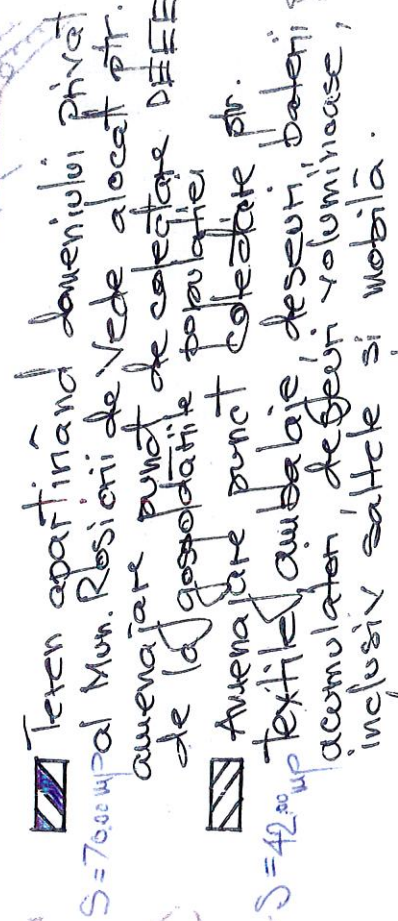 Teren aparținând domeniului Privat
S=70.00 mp al Mun. Roșiorii de Vede alocat ptr.
amenajare punct de colectare DEEE
de la gospodăriile populației
Amenajare punct colectare ptr.
S=42.00 mp Textile, ambalaje, deșeuri baterii
acumulatori, deșeuri voluminoase,
inclusiv saltele și mobilă.